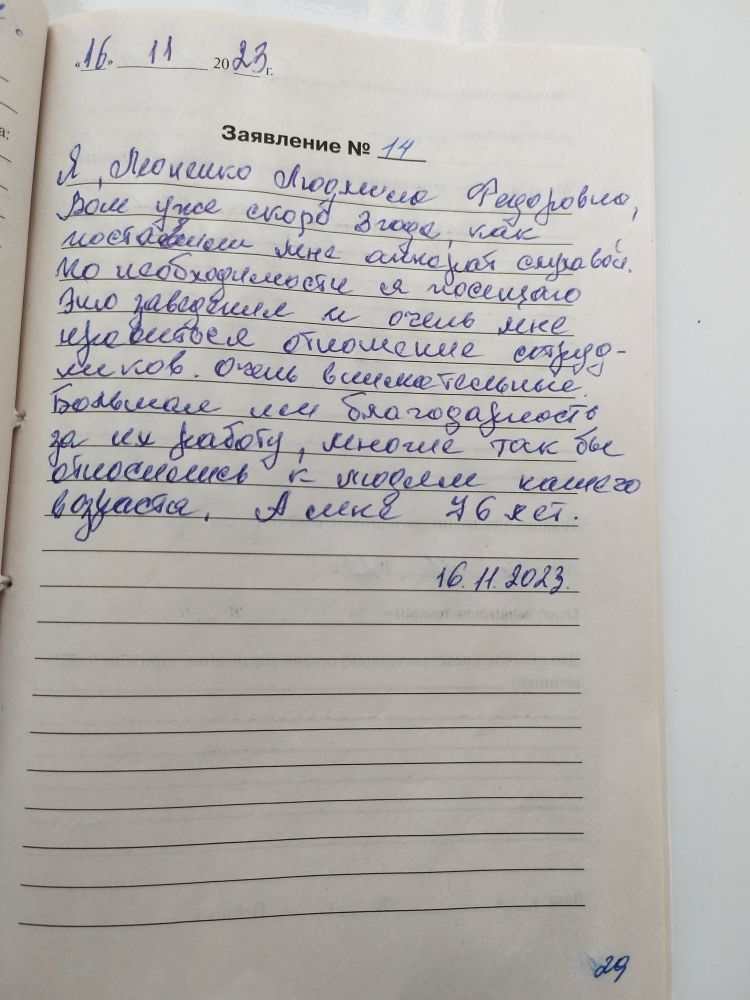 «16» 11 2023 г.
Заявление № 14
Я, Людмила Федоровна,
Вот уже скоро 3 года, как
поставили мне аппарат слуховой.
По необходимости я посещаю
Это заведения и очень мне
нравиться отношение сотруд-
ников. Очень внимательные.
Большая им благодарность
за их работу, многие так бы
относились к людям нашего
возраста, А мне 76 лет.
16.11.2023.
29